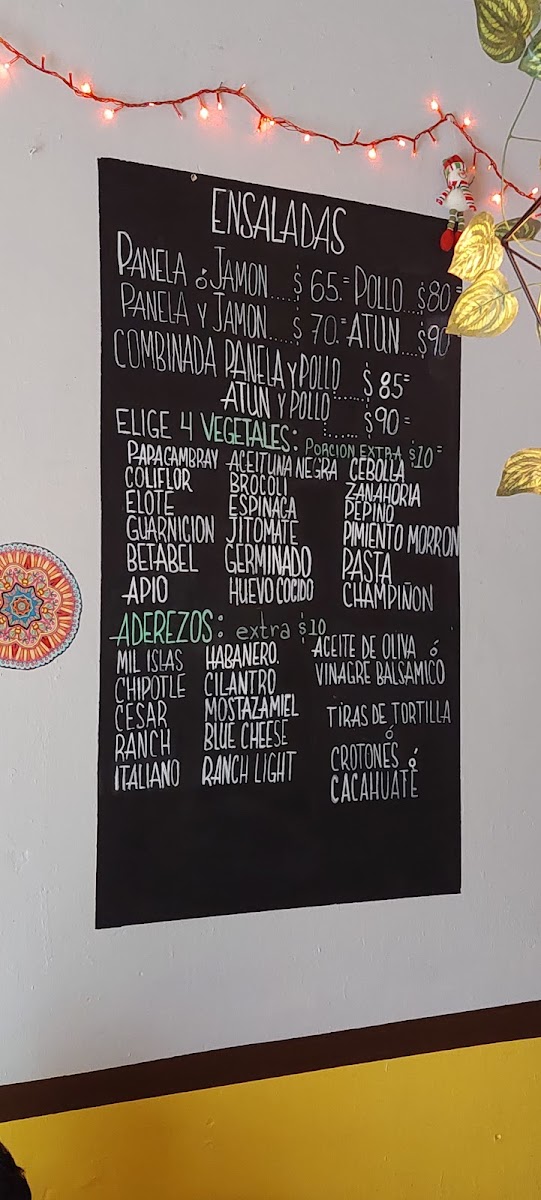 ENSALADAS
PANELA ó JAMON.....$ 65.= POLLO...$80=
PANELA Y JAMON.....$ 70.= ATUN....$90
COMBINADA PANELA y POLLO.....$ 85=
ATUN Y POLLO......$90=
ELIGE 4 VEGETALES: PORCION EXTRA $10=
PAPACAMBRAY ACEITUNA NEGRA CEBOLLA
COLIFLOR BROCOLI ZANAHORIA
ELOTE ESPINACA PEPINO
GUARNICION JITOMATE PIMIENTO MORRON
BETABEL GERMINADO PASTA
APIO HUEVO COCIDO CHAMPIÑON
ADEREZOS: extra $10
MIL ISLAS HABANERO. ACEITE DE OLIVA ó
CHIPOTLE CILANTRO VINAGRE BALSAMICO
CESAR MOSTAZAMIEL TIRAS DE TORTILLA
RANCH BLUE CHEESE ó
ITALIANO RANCH LIGHT CROTONES ó
CACAHUATE